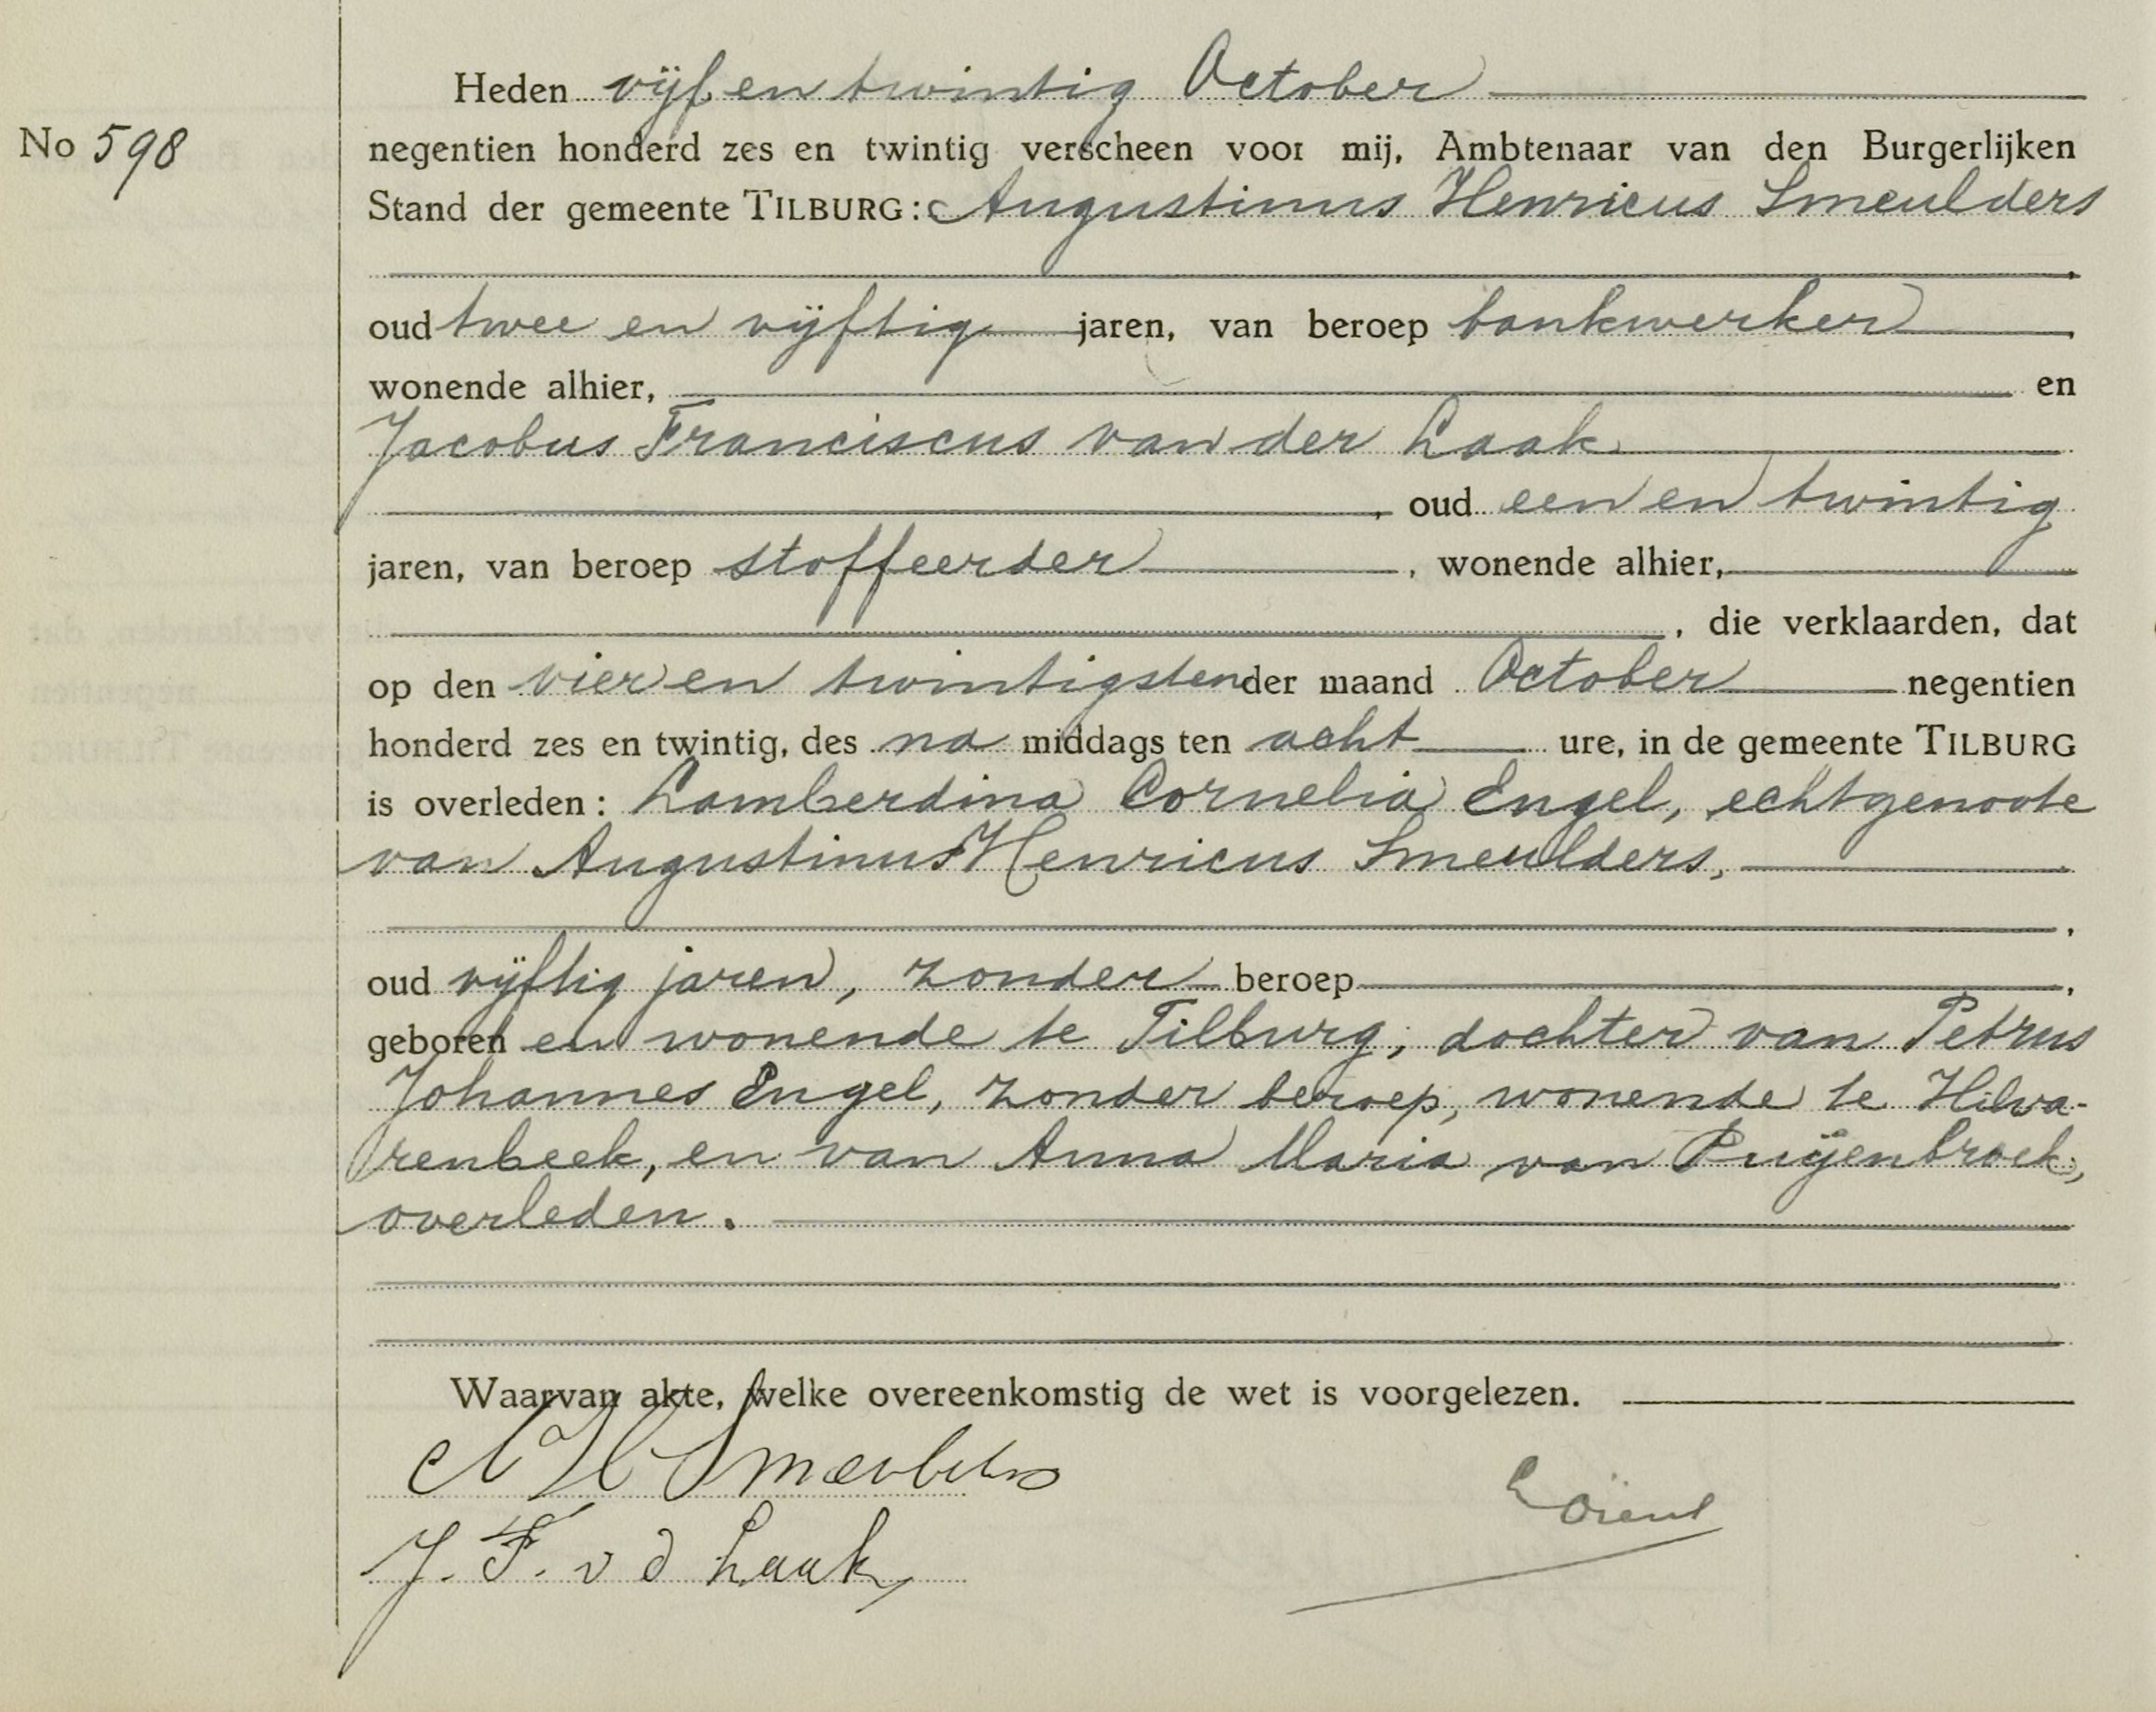 Heden vijf en twintig October
No 598
negentien honderd zes en twintig verscheen voor mij, Ambtenaar van den Burgerlijken
Stand der gemeente TILBURG: Augustinus Henricus Smeulders
,
oud twee en vijftig jaren, van beroep bankwerker,
wonende alhier, en
Jacobus Franciscus van der Laak
, oud een en twintig
jaren, van beroep stoffeerder, wonende alhier,
, die verklaarden, dat
op den vier en twintigsten der maand October negentien
honderd zes en twintig, des na middags ten acht ure, in de gemeente TILBURG
is overleden: Lamberdina Cornelia Engel, echtgenoote
van Augustinus Henricus Smeulders,
,
oud vijftig jaren, zonder beroep,
geboren en wonende te Tilburg, dochter van Petrus
Johannes Engel, zonder beroep, wonende te Hilva-
renbeek, en van Anna Maria van Puijenbroek,
overleden.
Waarvan akte, welke overeenkomstig de wet is voorgelezen.
A H Smeulders
J. F. v d Laak